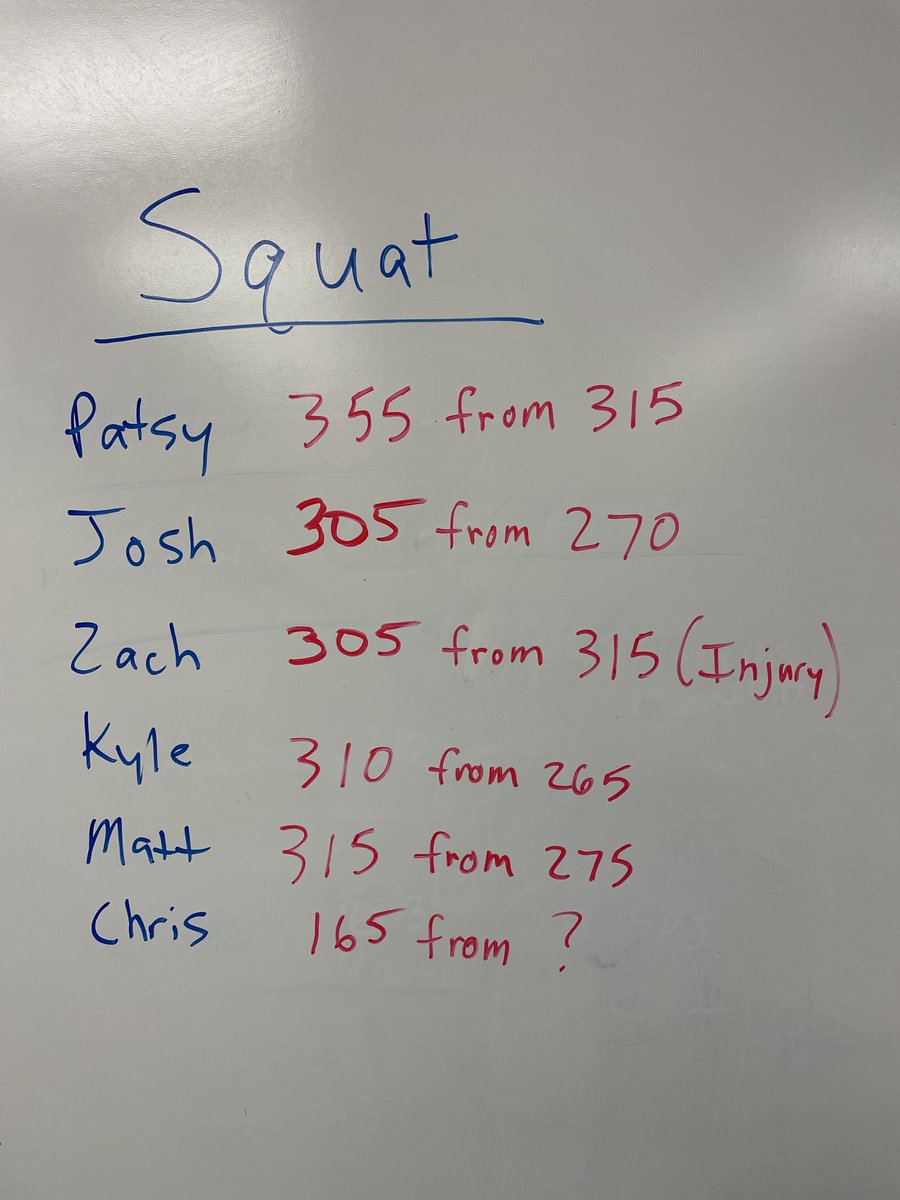 Squat
Patsy 355 from 315
Josh 305 from 270
Zach 305 from 315 (Injury)
Kyle 310 from 265
Matt 315 from 275
Chris 165 from ?